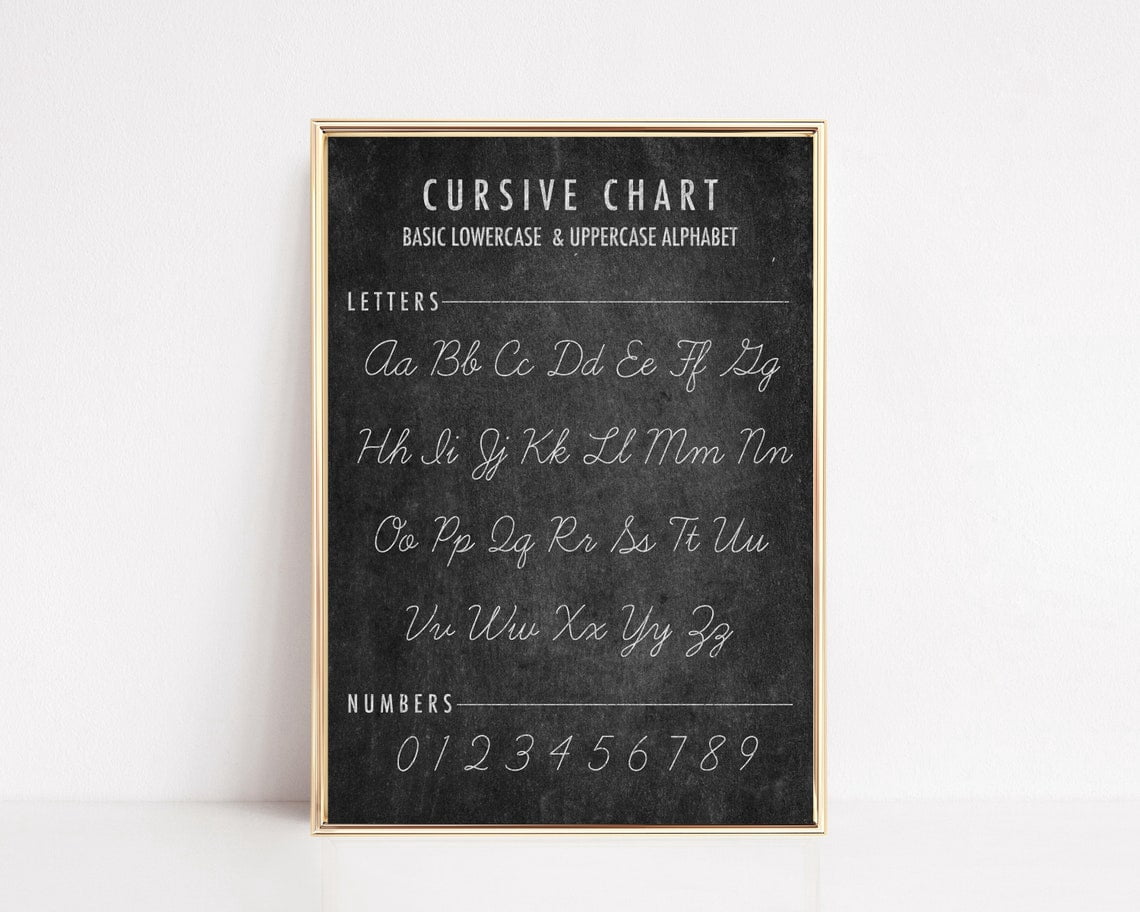 CURSIVE CHART
BASIC LOWERCASE & UPPERCASE ALPHABET
LETTERS
Aa Bb Cc Dd Ee Ff Gg
Hh Ii Jj Kk Ll Mm Nn
Oo Pp Qq Rr Ss Tt Uu
Vv Ww Xx Yy Zz
NUMBERS
0 1 2 3 4 5 6 7 8 9